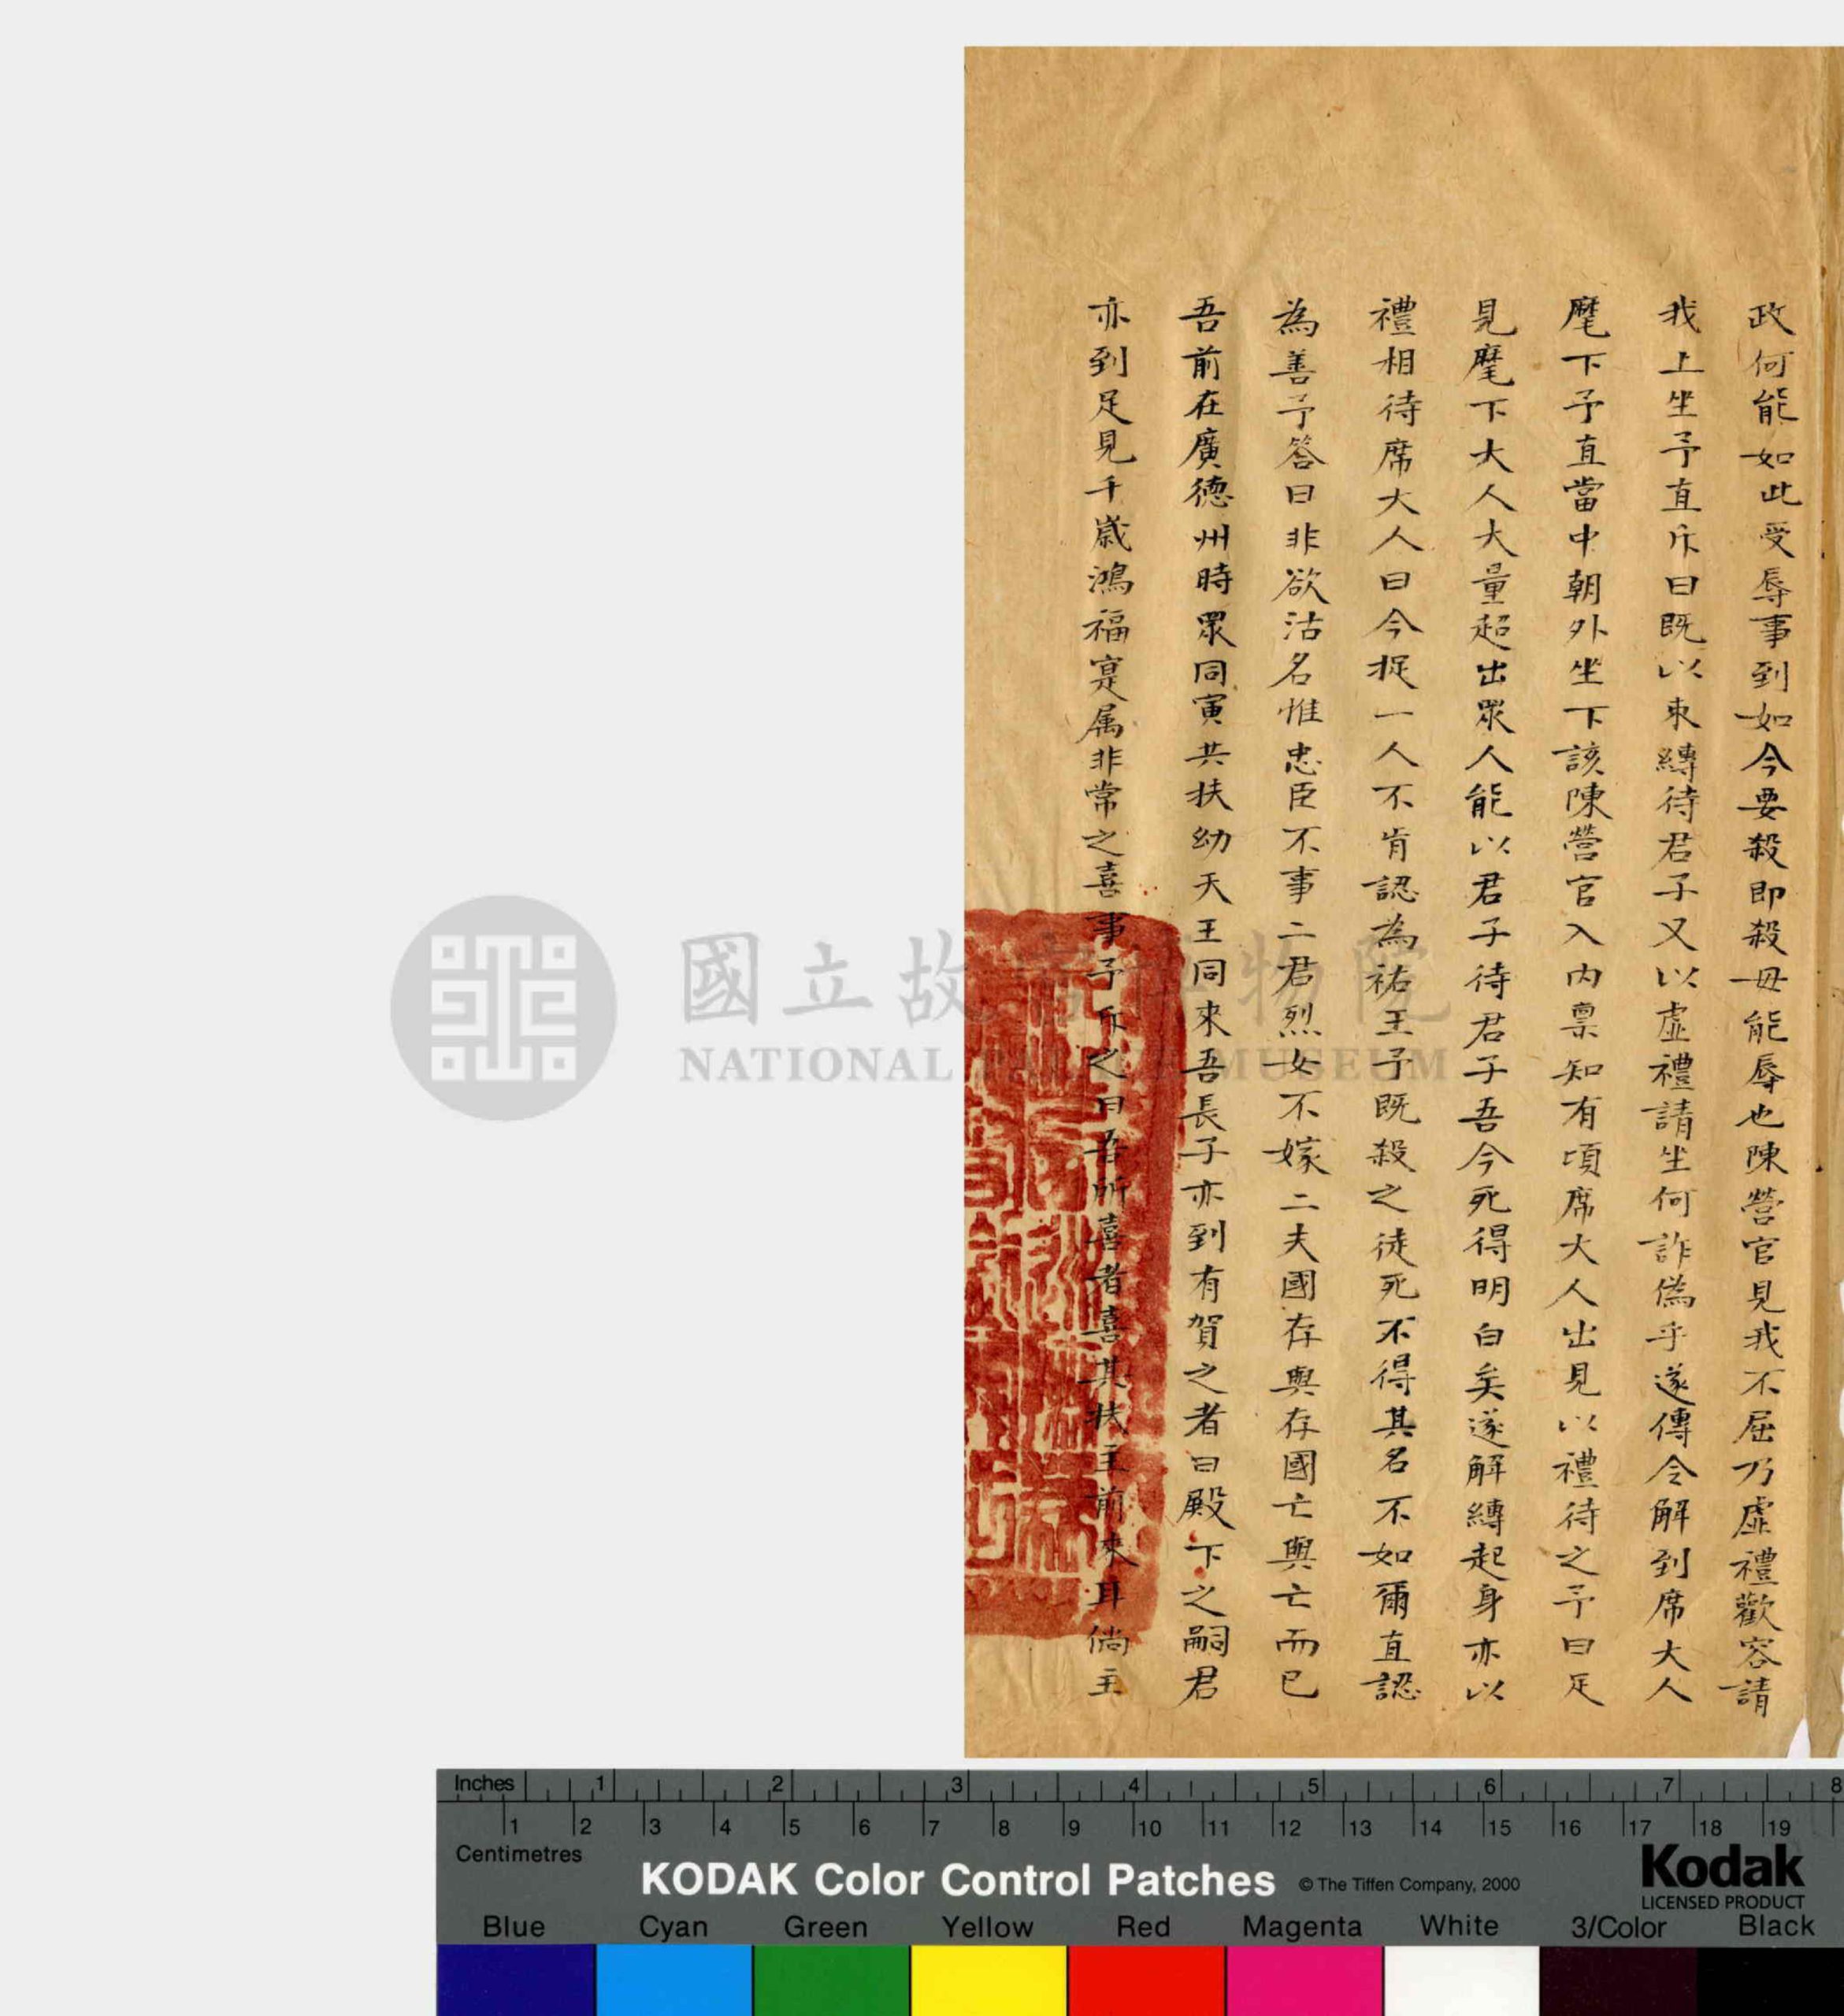 政何能如此受辱事到如今要殺即殺毋能辱也陳營官見我不屈乃虛禮歡容請
我上坐予直斥曰既以束縛待君子又以虛禮請坐何詐偽乎遂傳令解到席大人
麾下予直當中朝外坐下該陳營官入內禀知有頃席大人出見以禮待之予曰足
見麾下大人大量超出眾人能以君子待君子吾今死得明白矣遂解縛起身亦以
禮相待席大人曰今捉一人不肯認為祐王予既殺之徒死不得其名不如爾直認
為善予答曰非欲沽名惟忠臣不事二君烈女不嫁二夫國存與存國亡與亡而已
吾前在廣德州時眾同寅共扶幼天王同來吾長子亦到有賀之者曰殿下之嗣君
亦到足見千歲鴻福寔属非常之喜事予斥之曰吾所喜者喜其扶主前來耳倘主
國立故宮博物院
NATIONAL PALACE MUSEUM
Inches 1 2 3 4 5 6 7 8
1 2 3 4 5 6 7 8 9 10 11 12 13 14 15 16 17 18 19
Centimetres
KODAK Color Control Patches © The Tiffen Company, 2000
Kodak
LICENSED PRODUCT
Blue Cyan Green Yellow Red Magenta White 3/Color Black